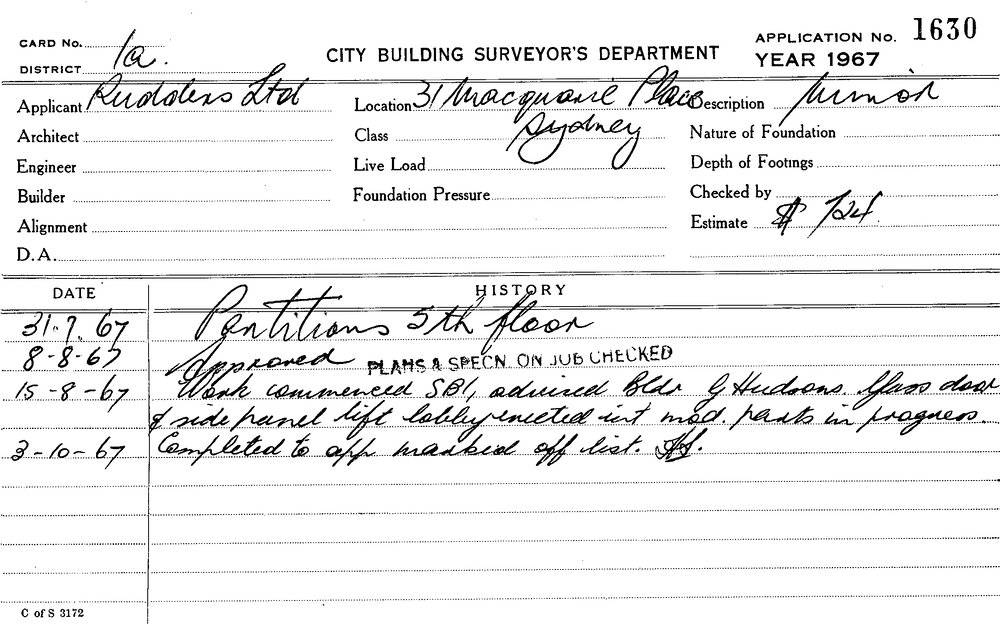 CARD No. 1a. CITY BUILDING SURVEYOR'S DEPARTMENT APPLICATION No. 1630
DISTRICT YEAR 1967
Applicant Rudders Ltd Location 31 Macquarie Place Description Minor
Architect Class Sydney Nature of Foundation
Engineer Live Load Depth of Footings
Builder Foundation Pressure Checked by
Alignment Estimate $ 724
D.A.
DATE HISTORY
31.7.67 Partitions 5th floor
8-8-67 Approved PLANS & SPECN. ON JOB CHECKED
15-8-67 Work commenced SB1, advised Bldr G Hudsons. Glass door
& side panel lift lobby erected int mod. parts in progress
3-10-67 Completed to app marked off list.
C of S 3172